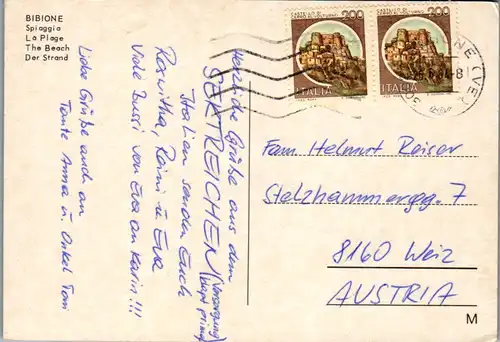 BIBIONE
Spiaggia
La Plage
The Beach
Der Strand
Herzliche Grüße aus dem
SEKTREICHEN (Versorgung
klappt prima)
Italien senden Euch
Roswitha, Raimi u Eva
Viele Bussi von Eva an Karin!!!
Liebe Grüße auch an
Tante Anna u. Onkel Toni
200
200
ITALIA
ITALIA
Fam Helmut Reiser
Stelzhammergg. 7
8160 Weiz
AUSTRIA
M